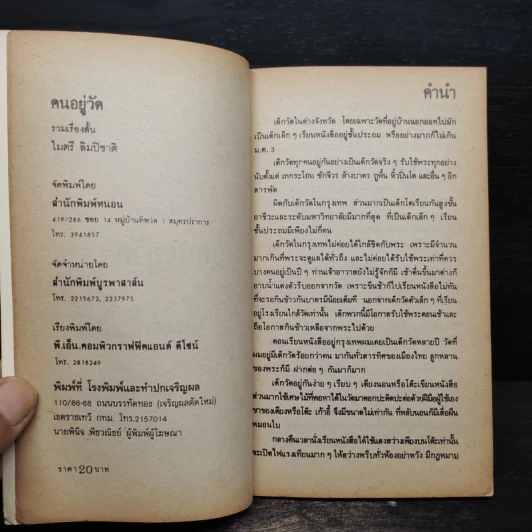 คนอยู่วัด
รวมเรื่องสั้น
ไมตรี ลิมปิชาติ
จัดพิมพ์โดย
สำนักพิมพ์หนอน
419/286 ซอย 14 หมู่บ้านทิพวล 1 สมุทรปราการ
โทร. 3941857
จัดจำหน่ายโดย
สำนักพิมพ์บูรพาสาส์น
โทร. 2215672, 2237975
เรียงพิมพ์โดย
พี.เอ็น.คอมพิวกราฟฟิคแอนด์ ดีไซน์
โทร. 2818249
พิมพ์ที่ โรงพิมพ์และทำปกเจริญผล
110/66-68 ถนนบรรทัดทอง (เจริญผลตัดใหม่)
เขตราชเทวี กทม. โทร.2157014
นายพินิจ พัชวณิชย์ ผู้พิมพ์ผู้โฆษณา
ราคา 20 บาท
คำนำ
เด็กวัดในต่างจังหวัด โดยเฉพาะวัดที่อยู่บ้านนอกออกไปมัก
เป็นเด็กเล็ก ๆ เรียนหนังสืออยู่ชั้นประถม หรืออย่างมากก็ไม่เกิน
ม.ศ. 3
เด็กวัดทุกคนอยู่กันอย่างเป็นเด็กวัดจริง ๆ รับใช้พระทุกอย่าง
นับตั้งแต่ เทกระโถน ซักจีวร ล้างบาตร ถูพื้น หิ้วปิ่นโต และอื่น ๆ อีก
สารพัด
ผิดกับเด็กวัดในกรุงเทพ ส่วนมากเป็นเด็กโตเรียนกันสูงขั้น
อาชีวะและระดับมหาวิทยาลัยมีมากที่สุด ที่เป็นเด็กเล็ก ๆ เรียน
ชั้นประถมมีเพียงไม่กี่คน
เด็กวัดในกรุงเทพไม่ค่อยได้ใกล้ชิดกับพระ เพราะมีจำนวน
มากเกินที่พระจะดูแลได้ทั่วถึง และไม่ค่อยได้รับใช้พระเท่าที่ควร
บางคนอยู่เป็นปี ๆ ท่านเจ้าอาวาสยังไม่รู้จักก็มี เช้าตื่นขึ้นมาต่างก็
อาบน้ำแต่งตัวรีบออกจากวัด เพราะขืนช้าก็ไปเรียนหนังสือไม่ทัน
ที่จะรอกินข้าวก้นบาตรมีน้อยเต็มที นอกจากเด็กวัดตัวเล็ก ๆ ที่เรียน
อยู่โรงเรียนใกล้วัดเท่านั้น เด็กพวกนี้มีโอกาสรับใช้พระตอนเช้าและ
ถือโอกาสกินข้าวเหลือจากพระไปด้วย
ตอนเรียนหนังสืออยู่กรุงเทพผมเคยเป็นเด็กวัดหลายปี วัดที่
ผมอยู่มีเด็กวัดร้อยกว่าคน มากันทั่วสารทิศของเมืองไทย ลูกหลาน
ของพระก็มี ฝากต่อ ๆ กันมาก็มาก
เด็กวัดอยู่กันง่าย ๆ เรียบ ๆ เตียงนอนหรือโต๊ะเขียนหนังสือ
ส่วนมากใช้เศษไม้ที่พอหาได้ในวัดมาตอกปะติดปะต่อด้วยฝีมือผู้ใช้เอง
ขาของเตียงหรือโต๊ะ เก้าอี้ จึงมีขนาดไม่เท่ากัน ที่หลับนอนก็มีเสื่อผืน
หมอนใบ
กลางคืนเวลานั่งเรียนหนังสือได้ใช้แสงสว่างเพียงบนโต๊ะเท่านั้น
จะเปิดไฟแรงเทียนมาก ๆ ให้สว่างพรึบทั่วห้องอย่าหวัง มีกฎหมาย